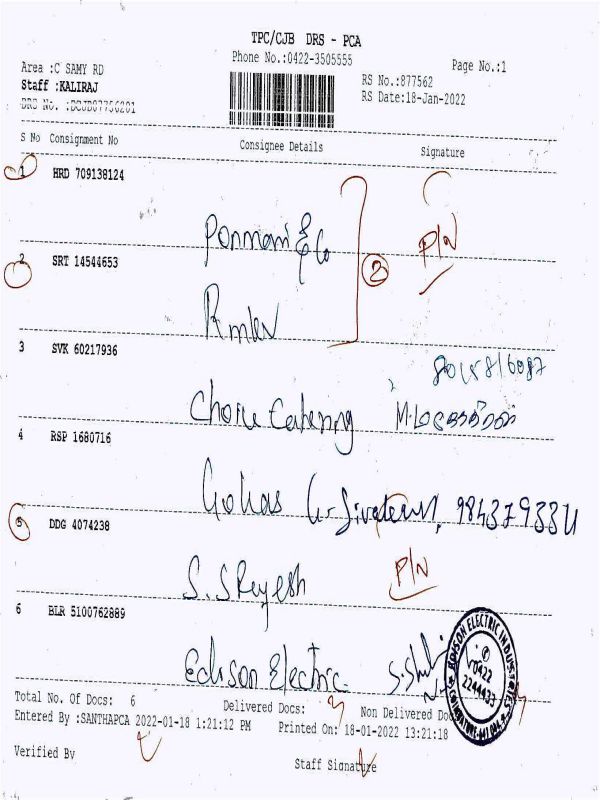 TPC/CJB DRS - PCA
Phone No.:0422-3505555
Page No.:1
Area :C SAMY RD
RS No.:877562
Staff :KALIRAJ
RS Date:18-Jan-2022
DRS No. :DCJB07756201
S No Consignment No Consignee Details Signature
1 HRD 709138124
Ponmani & Co
P/N
2 SRT 14544653
2
Rmkv
3 SVK 60217936
Choice Catering
4 RSP 1680716
Gokas
5 DDG 4074238
S.S Rajesh
P/N
6 BLR 5100762889
Edison Electric
EDISON ELECTRIC INDUSTRIES
0422
2244433
Total No. Of Docs: 6 Delivered Docs: 3 Non Delivered Doc 3
Entered By :SANTHAPCA 2022-01-18 1:21:12 PM Printed On: 18-01-2022 13:21:18
Verified By
Staff Signature